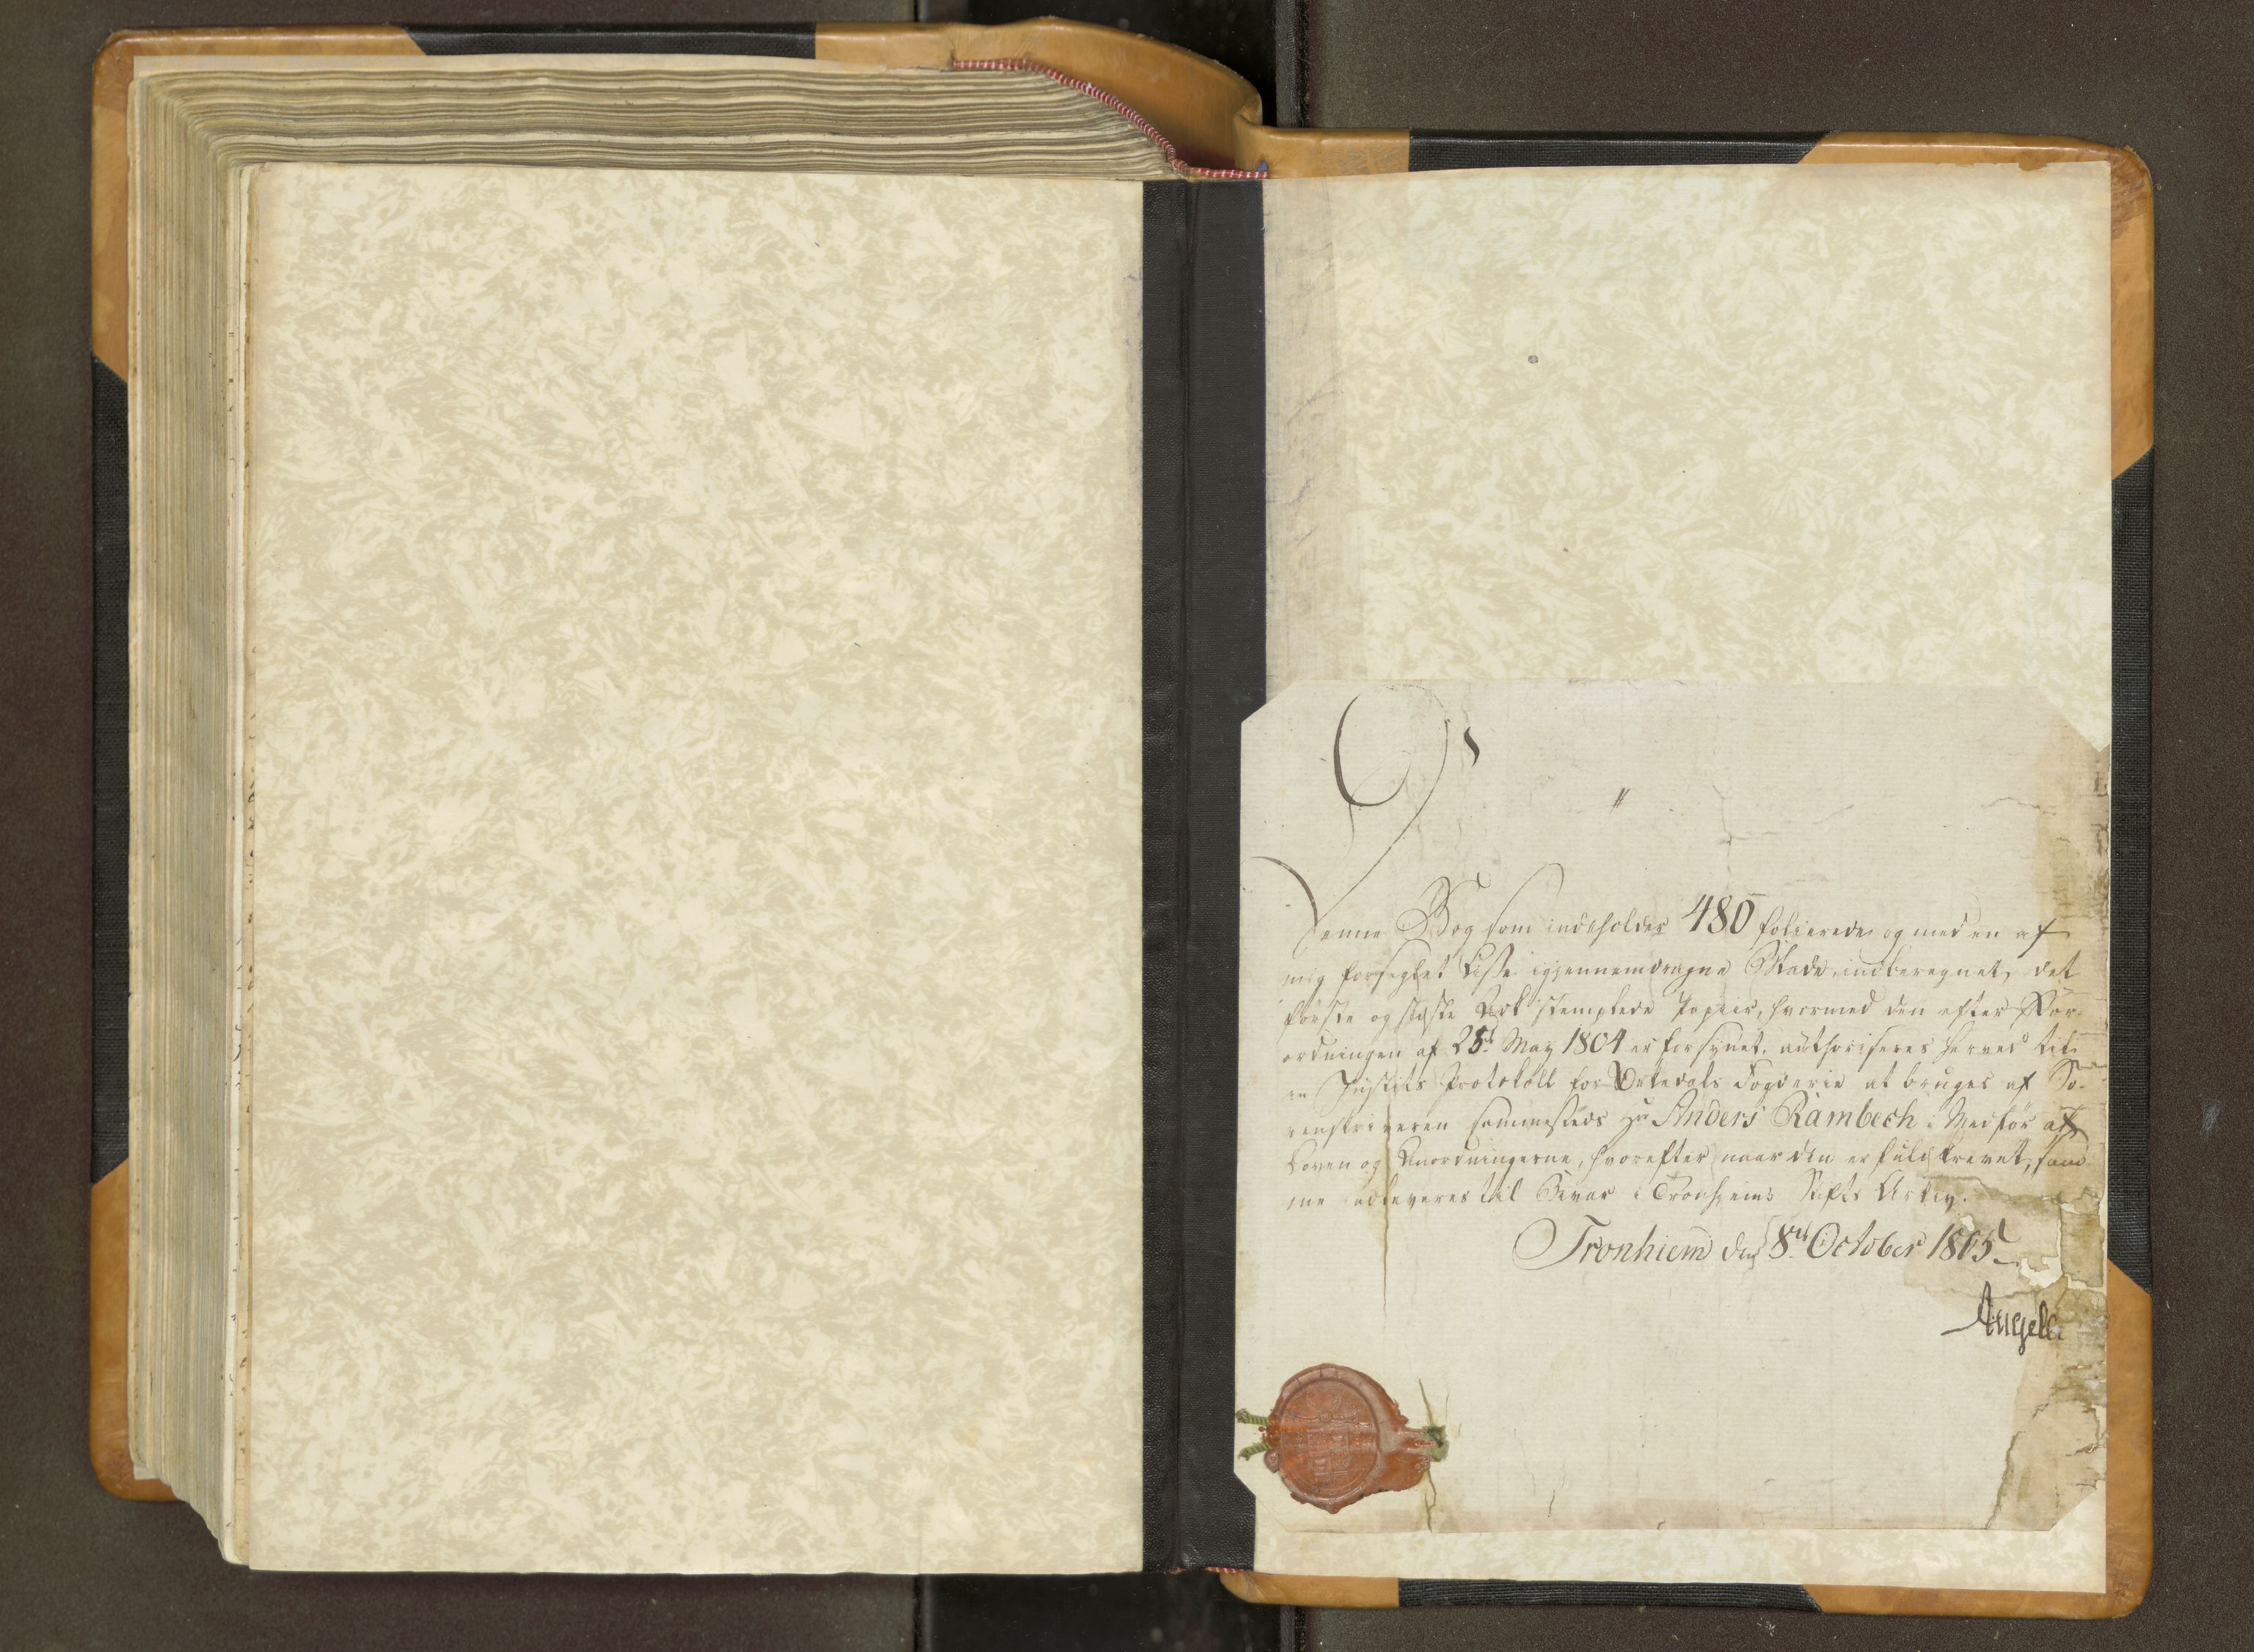 Denne Bog som indeholder 480 folierede og med en af
mig forseglet Lisse igjennemdragne Blade, indberegnet, det
første og sidste Ark stemplede Papiir, hvormed den efter For-
ordningen af 25d May 1804 er forsynet, authoriseres herved til
en Justits Protokoll for Ørkedals Fogderie at bruges af So-
renskriveren sammesteds Hr Anders Rambech i Medfør af
Loven og Anordningerne, hvorefter naar den er fuldskrevet, sam-
me udleveres til Bevar i Tronhjems Stifts Arkiv.
Tronhiem den 8de October 1805
Angell